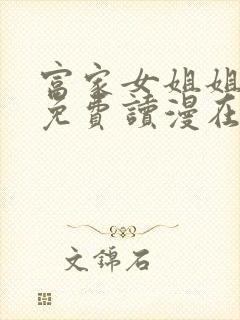 富家女姐姐
免費讀漫在
文錦石